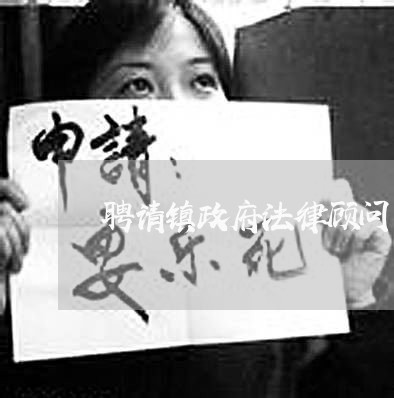 申請：
聘请镇政府法律顾问
安乐死